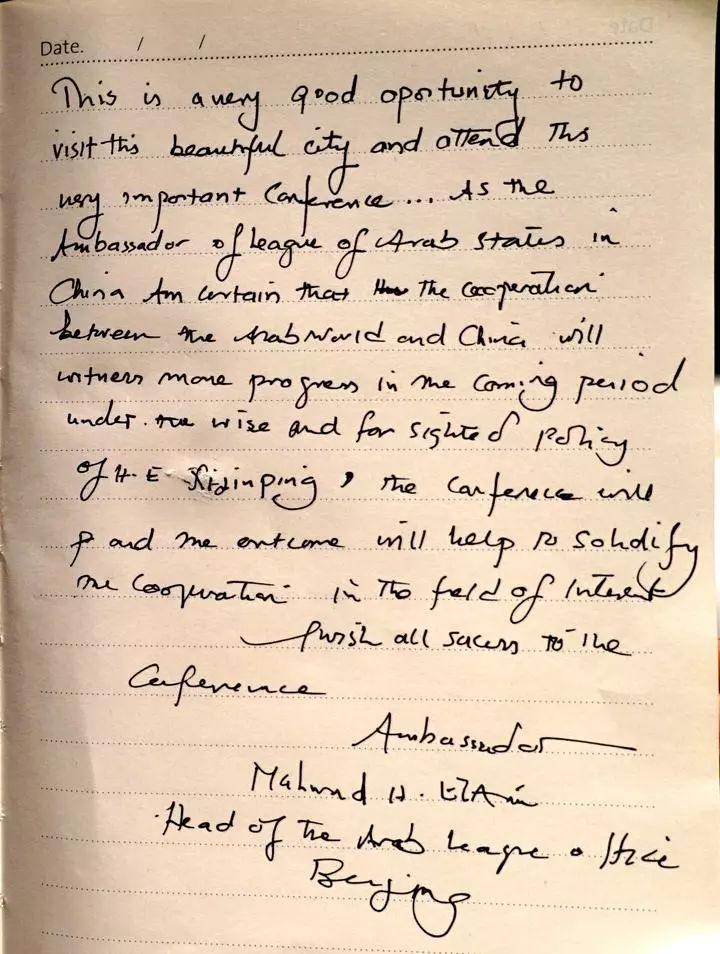 Date. / /
This is a very good oportunity to
visit this beautiful city and attend This
very important Conference... As the
Ambassador of league of Arab states in
China Am certain that the cooperation
between the Arab World and China will
witness more progress in the coming period
under the wise and far sighted policy
of H.E Xi jinping, the conference will
and the outcome will help to solidify
the cooperation in the field of Interest
I wish all success to the
Conference
Ambassador
Mahmud H. ElAmin
Head of the Arab league office
Beijing